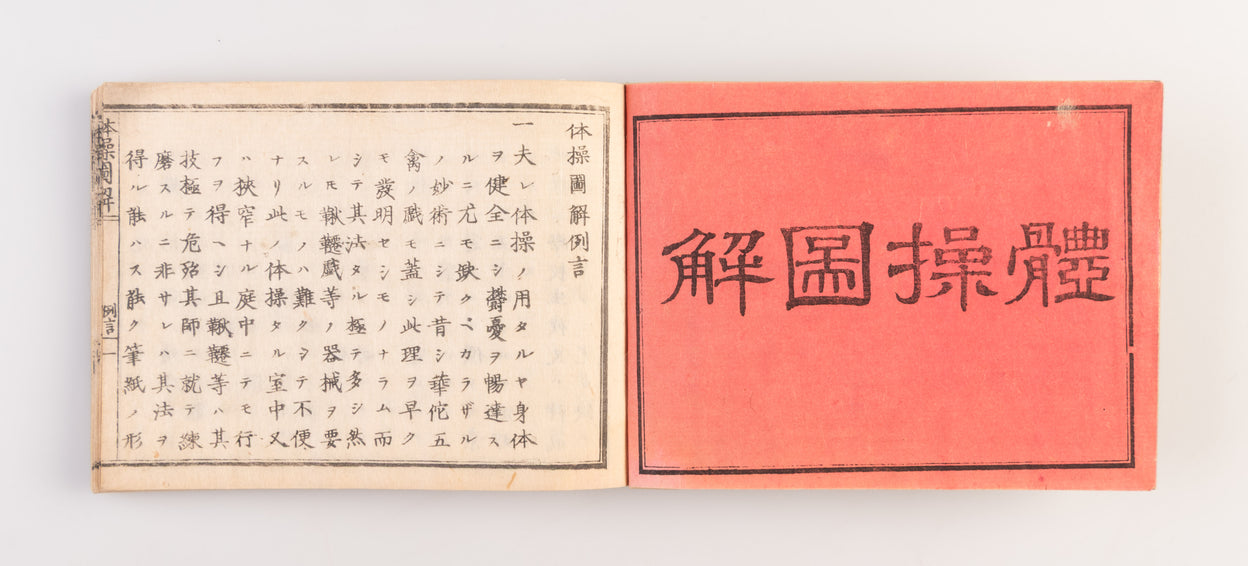 體操圖解
体操圖解例言
一夫レ体操ノ用タルヤ身体
ヲ健全ニシ欝憂ヲ暢達ス
ルニ尤モ缺クベカラザル
ノ妙術ニシテ昔シ華佗五
禽ノ戯モ蓋シ此理ヲ早ク
モ發明セシモノナラム而
シテ其法タル極テ多シ然
レモ鞦韆戯等ノ器械ヲ要
スルモノハ難クシテ不便
ナリ此ノ体操タル室中又
ハ狹窄ナル庭中ニテモ行
フヲ得ヘシ且鞦韆等ハ其
技極テ危殆其師ニ就テ練
磨スルニ非サレハ其法ヲ
得ル能ハス能ク筆紙ノ形
体操圖解
例言
一